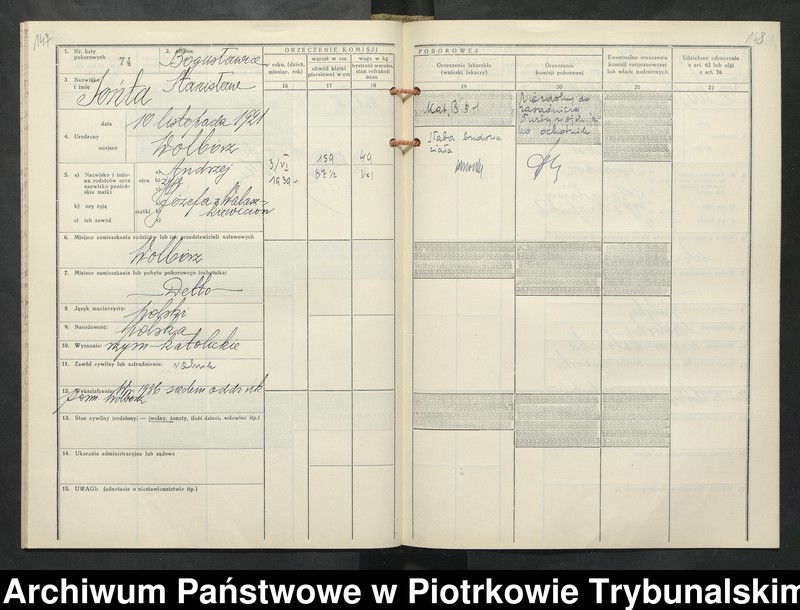 147
148
1. Nr. listy poborowych 74
2. Gmina Bogusławice
3. Nazwisko i imię Sońta Stanisław
data 10 listopada 1921
4. Urodzony
miejsce Wolbórz
5. a) Nazwisko i imiona rodziców oraz nazwisko panieńskie matki
b) czy żyją
c) ich zawód
ojca
a) Andrzej
b) żyje
matki
Józefa z
6. Miejsce zamieszkania rodziców lub ich przedstawicieli ustawowych
Wolbórz
7. Miejsce zamieszkania lub pobytu poborowego (ochotnika)
Detto
8. Język macierzysty: polski
9. Narodowość: polska
10. Wyznanie: rzym-katolickie
11. Zawód cywilny lub zatrudnienie: rolnik
12. Wykształcenie: 1936 siedem oddz.
Wolbórz
13. Stan cywilny (rodzinny): — (wolny, żonaty, ilość dzieci, wdowiec itp.)
14. Ukarania administracyjne lub sądowe
15. UWAGI: (adnotacje o niestawiennictwie itp.)
ORZECZENIE KOMISJI POBOROWEJ
w roku, (dzień, miesiąc, rok)
wzrost w cm
obwód klatki piersiowej w cm
waga w kg
bystrość wzroku, stan refrakcji oczu
Orzeczenie lekarskie (wnioski lekarzy)
Orzeczenie komisji poborowej
Ewentualne orzeczenia komisji rozpoznawczej lub władz nadzorczych
Udzielone odroczenia z art. 62 lub ulgi z art. 76
16
17
18
19
20
21
22
3/VI
1939 r.
159
87 1/2
49
Kat B
Słaba budowa
ciała
Niezdolny do
zasadniczej
służby wojsk ja
ko ochotnik
Archiwum Państwowe w Piotrkowie Trybunalskim